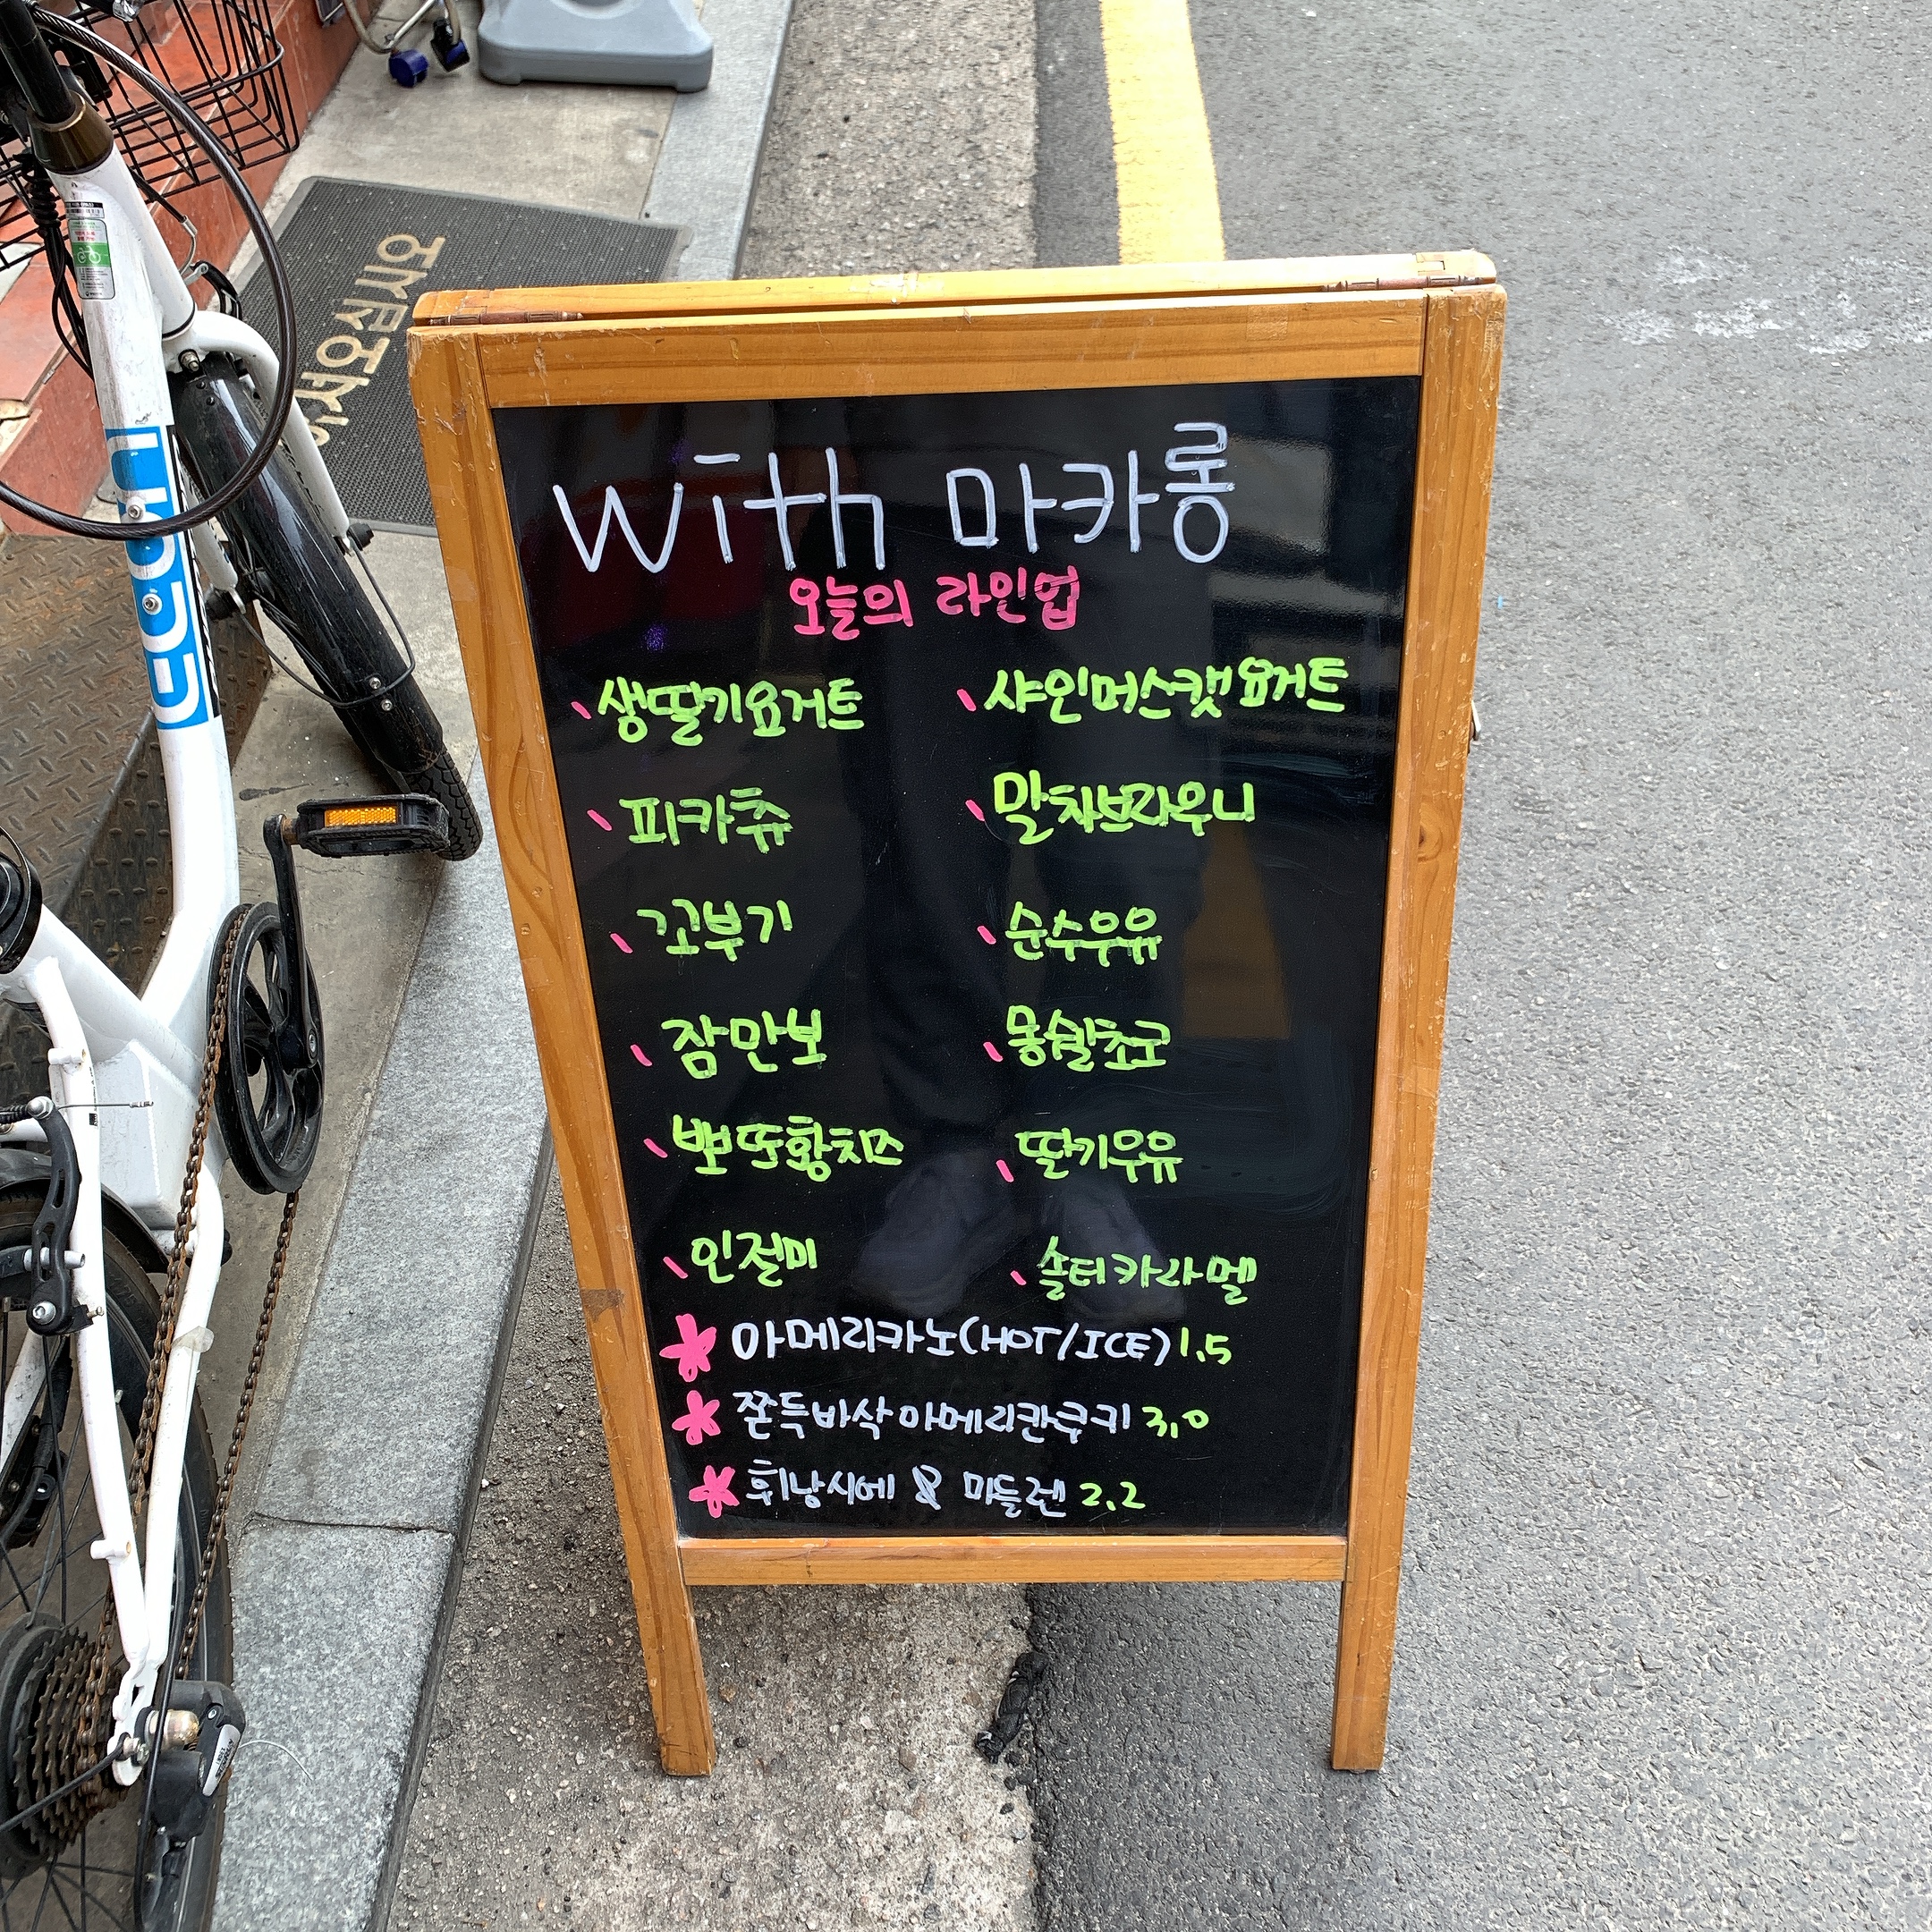 with 마카롱
오늘의 라인업
생딸기요거트
샤인머스캣요거트
피카츄
말차브라우니
꼬부기
순수우유
잠만보
몽쉘초코
뽀또황치즈
딸기우유
인절미
솔티카라멜
아메리카노(HOT/ICE) 1.5
쫀득바삭아메리칸쿠키 3.0
휘낭시에 & 마들렌 2.2